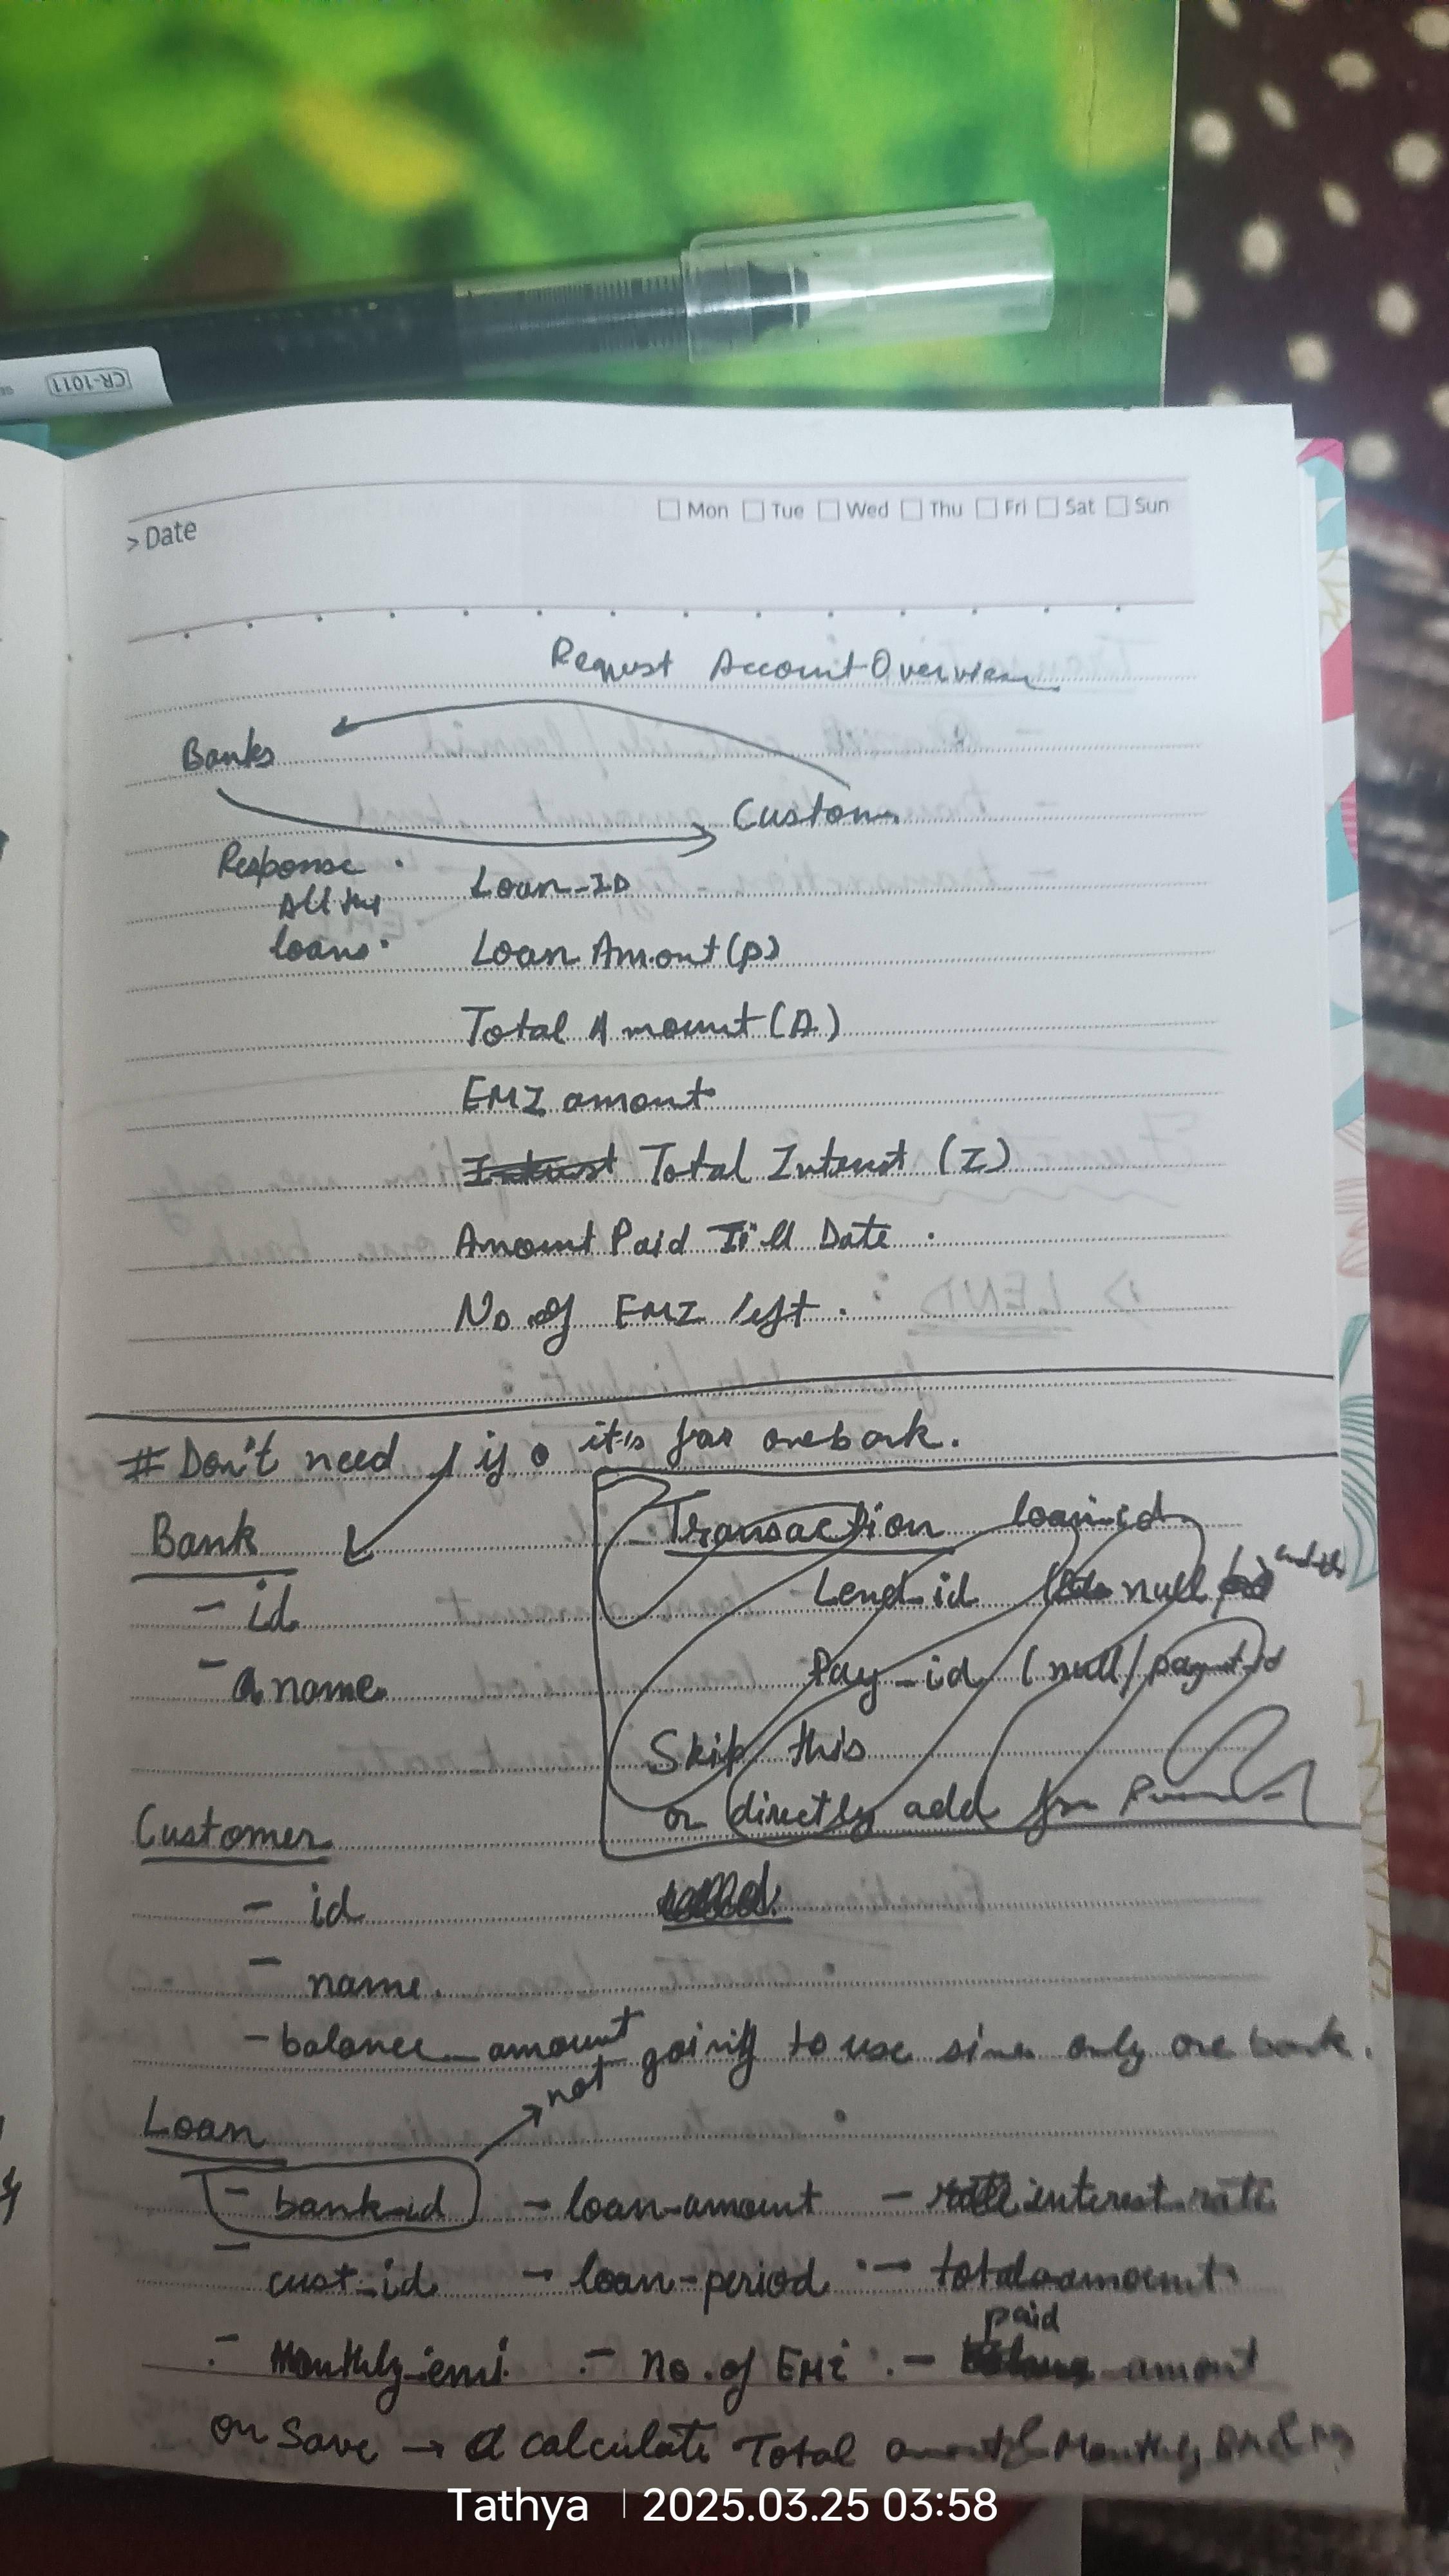 CR-1011
> Date
Mon Tue Wed Thu Fri Sat Sun
Request Account Overview
Banks
Custom
Response
All the
loans.
Loan-ID
Loan Amount (P)
Total Amount (A)
EMI amount
Interest Total Interest (I)
Amount Paid Till Date.
No. of EMI left.
# Don't need if it's for one bank.
Bank
- id
- name
Transaction loan-id
Lend-id null
Pay-id (null/
Skip this
or directly add for
Customer
- id
- name.
- balance_amount
not going to use since only one bank.
Loan
- bank-id - loan-amount - interest-rate
- cust-id - loan-period - total-amount
- Monthly-emi - No. of EMI - paid amount
On Save → calculate Total amount & Monthly
Tathya | 2025.03.25 03:58